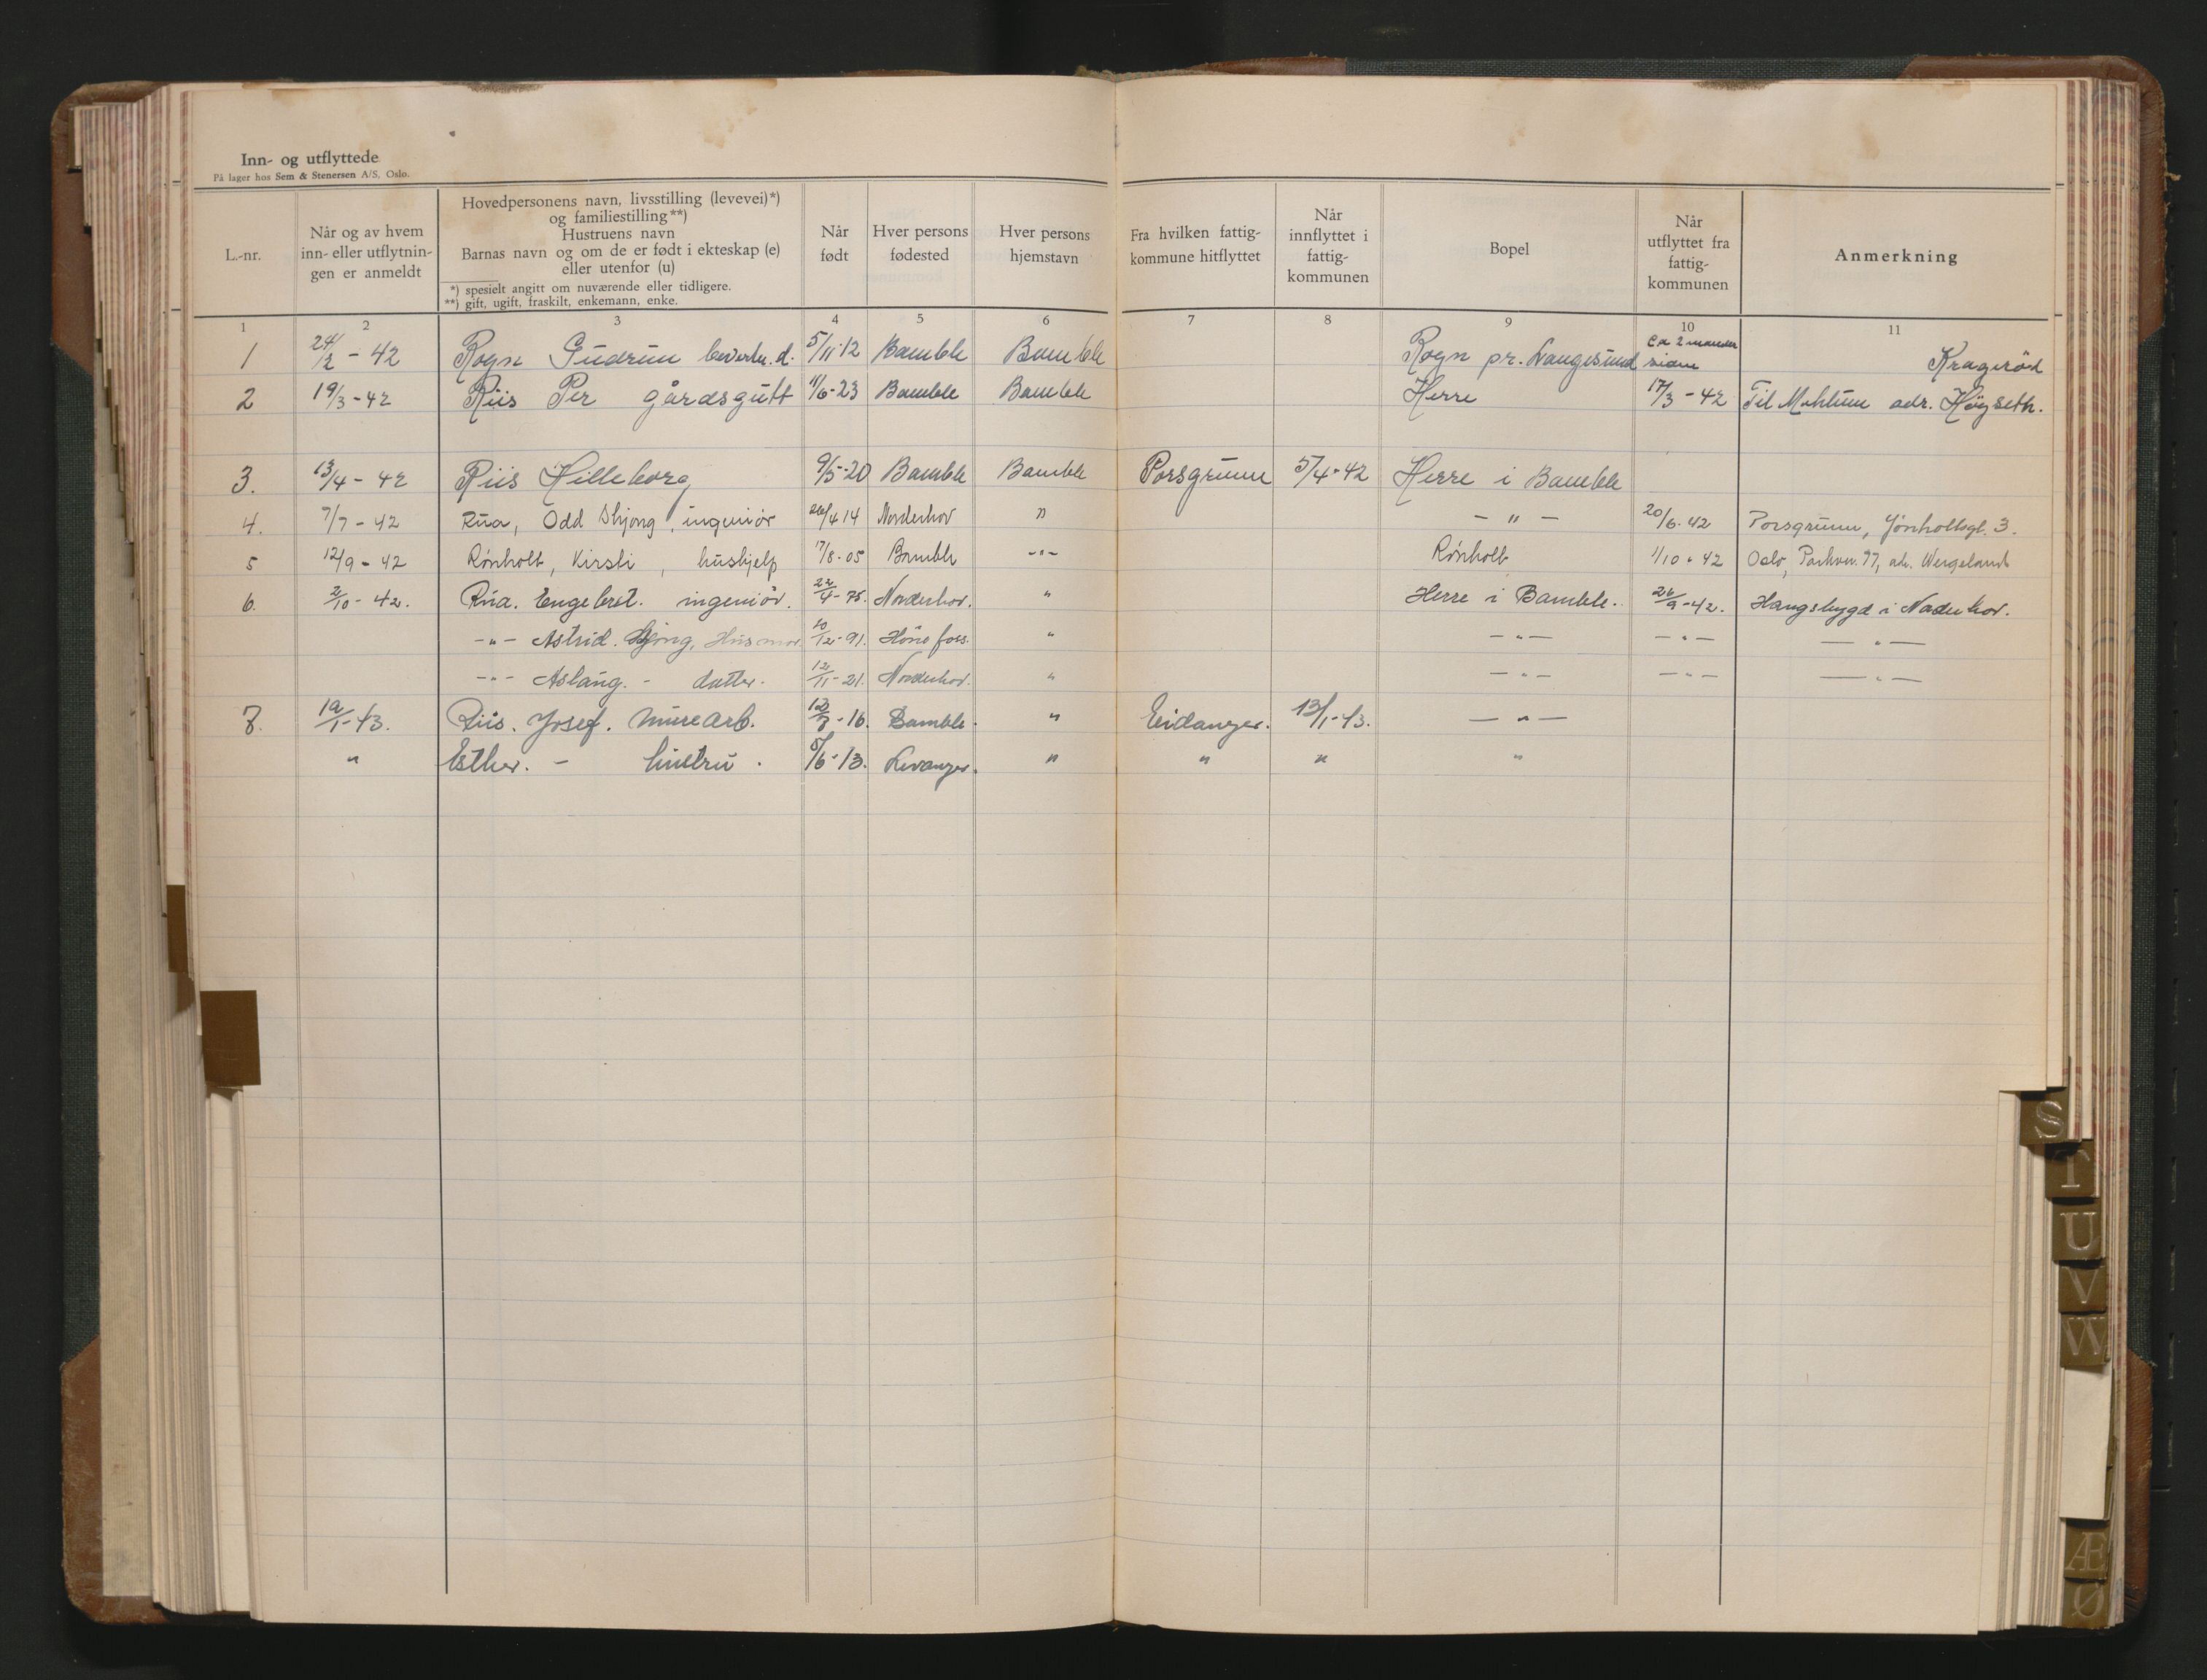 Inn- og utflyttede
På lager hos Sem & Stenersen A/S, Oslo.
L.-nr.
Når og av hvem
inn- eller utflytnin-
gen er anmeldt
Hovedpersonens navn, livsstilling (levevei)*)
og familiestilling**)
Hustruens navn
Barnas navn og om de er født i ekteskap (e)
eller utenfor (u)
*) spesielt angitt om nuværende eller tidligere.
**) gift, ugift, fraskilt, enkemann, enke.
Når
født
Hver persons
fødested
Hver persons
hjemstavn
Fra hvilken fattig-
kommune hitflyttet
Når
innflyttet i
fattig-
kommunen
Bopel
Når
utflyttet fra
fattig-
kommunen
Anmerkning
1 2 3 4 5 6 7 8 9 10 11
1 24/2 - 42 Rogn Gudrun d. 5/11-12 Bamble Bamble Rogn pr. Langesund ca 2 maaneder siden Kragerød
2 19/3 - 42 Riis Per gårdsgutt 11/6-23 Bamble Bamble Herre 17/3 - 42 Til adr. Høyseth.
3. 13/4 - 42 Riis Hilleborg 9/5-20 Bamble Bamble Porsgrunn 5/4-42 Herre i Bamble
4. 7/7 - 42 Rua, Odd , ingeniør 26/4 14 Norderhov " - " - 20/6-42 Porsgrunn, Jønholtsgt. 3.
5 12/9 - 42 Rønholt, Kirsti , hushjelp 17/8-05 Bamble -"- Rønholt 1/10-42 Oslo, Parkvn. 77, adr. Wergeland
6. 2/10 - 42. Rua. Engebret. ingeniør. 22/4-75. Norderhov. " Herre i Bamble. 26/9-42. Haugsbygd i Norderhov.
-"- Astrid. Husmor. 10/12-91. Hønefoss. " -"- -"- -"-
-"- Aslaug. - datter. 12/11-21. Norderhov. " -"- -"- -"-
7. 19/1-43. Riis. Josef. Murearb. -16. Bamble. " Eidanger. 13/1-43. -"-
" Esther. - hustru. 5/6-13. Levanger. " " " "
S
T
U
V
W
Æ
Ø